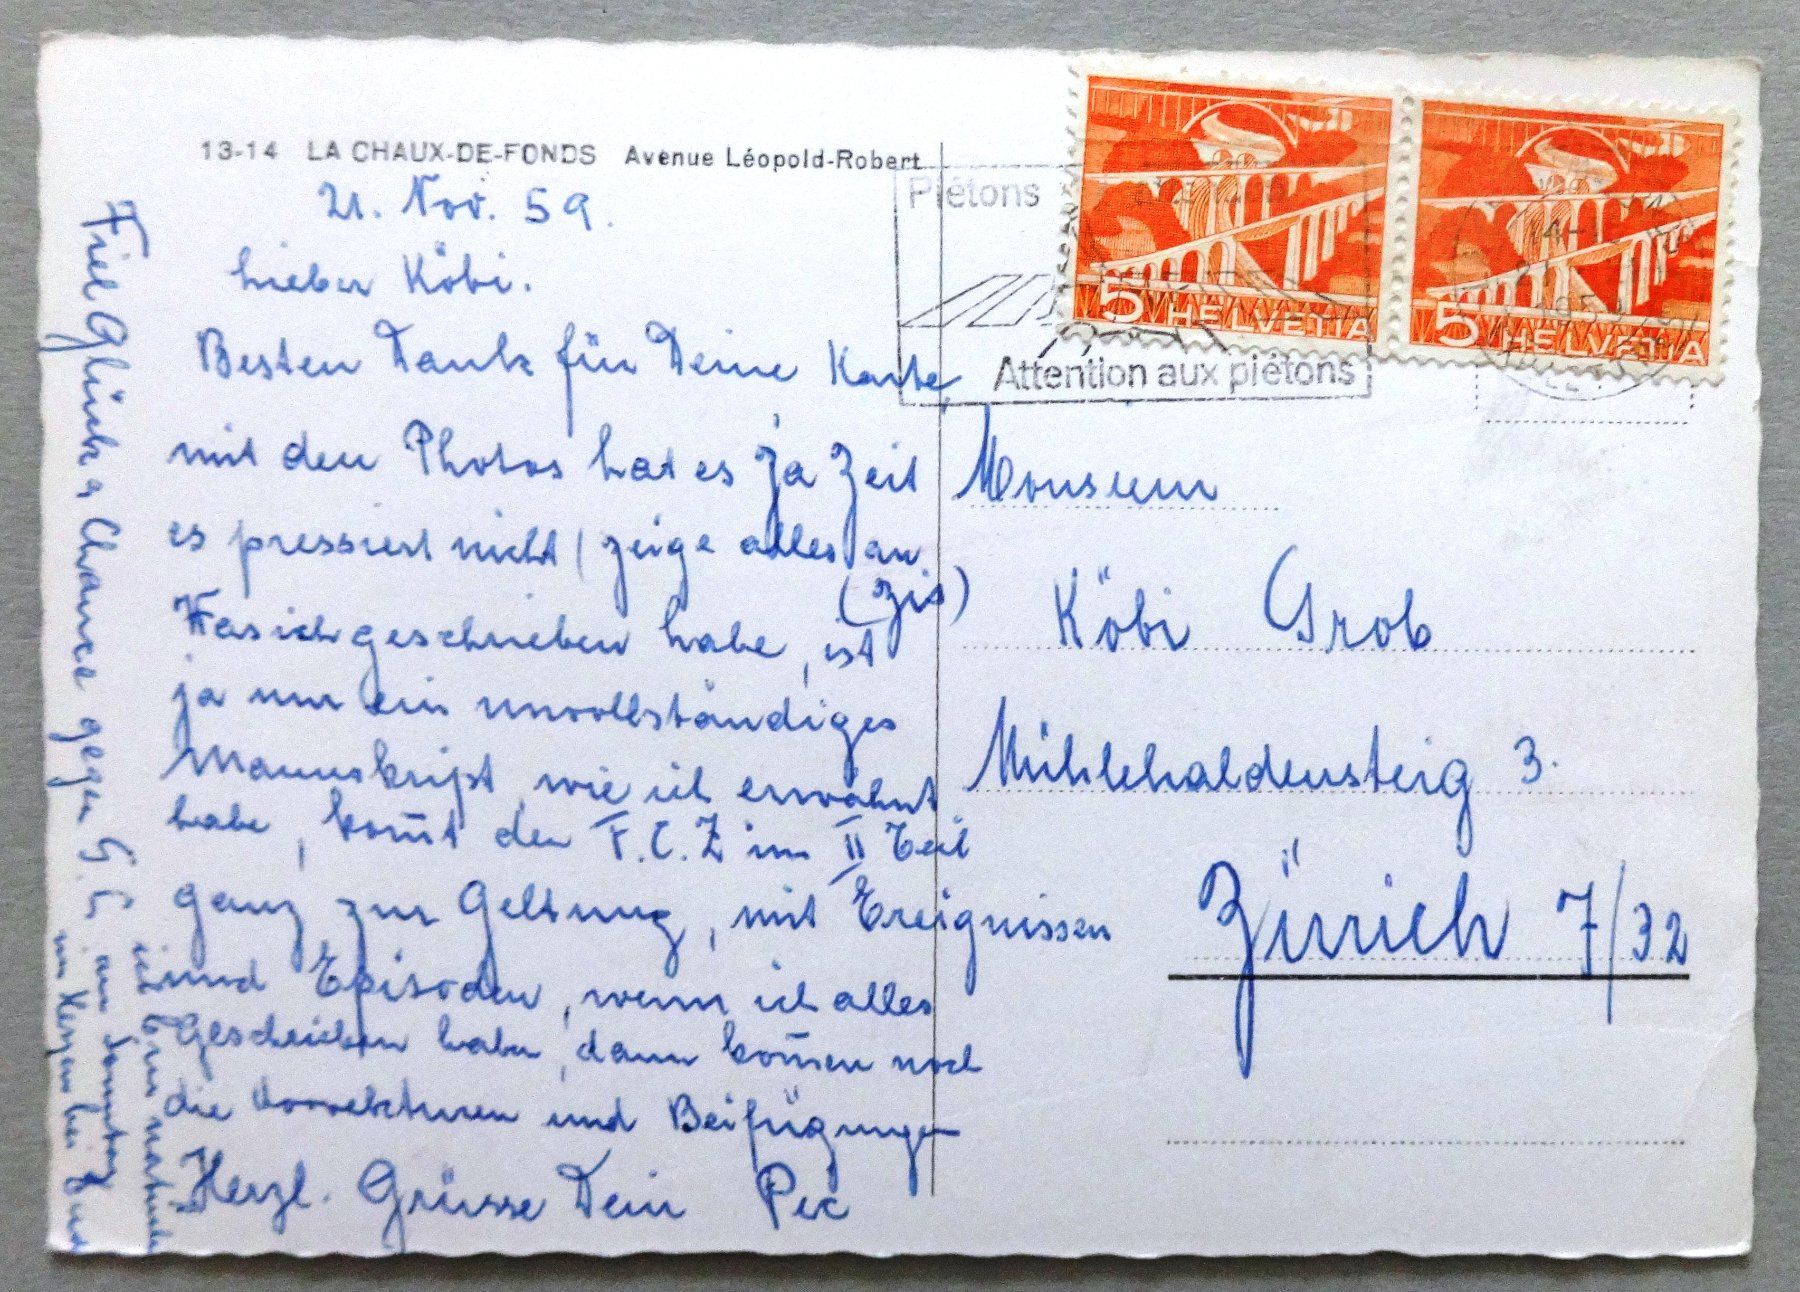 13-14 LA CHAUX-DE-FONDS Avenue Léopold-Robert
21. Nov. 59.
Lieber Köbi.
Besten Dank für Deine Karte,
mit den Photos hat es ja Zeit
es pressiert nicht, zeige alles an
(Zis)
Was ich geschrieben habe, ist
ja nur ein unvollständiges
Manuskript, wie ich erwähnt
habe, kom̄t der F.C.Z im II Teil
ganz zur Geltung, mit Ereignissen
und Episoden, wenn ich alles
Geschrieben habe, dann kom̄en noch
die Korrekturen und Beifügungen
Herzl. Grüsse Dein Pic
Fiel Glück & Chance gegen G.C. am Sonntag
ich bin natürlich
im Herzen bei Euch
Piétons
Attention aux piétons
5 HELVETIA
5 HELVETIA
Monsieur
Köbi Grob
Mühlehaldensteig 3.
Zürich 7/32